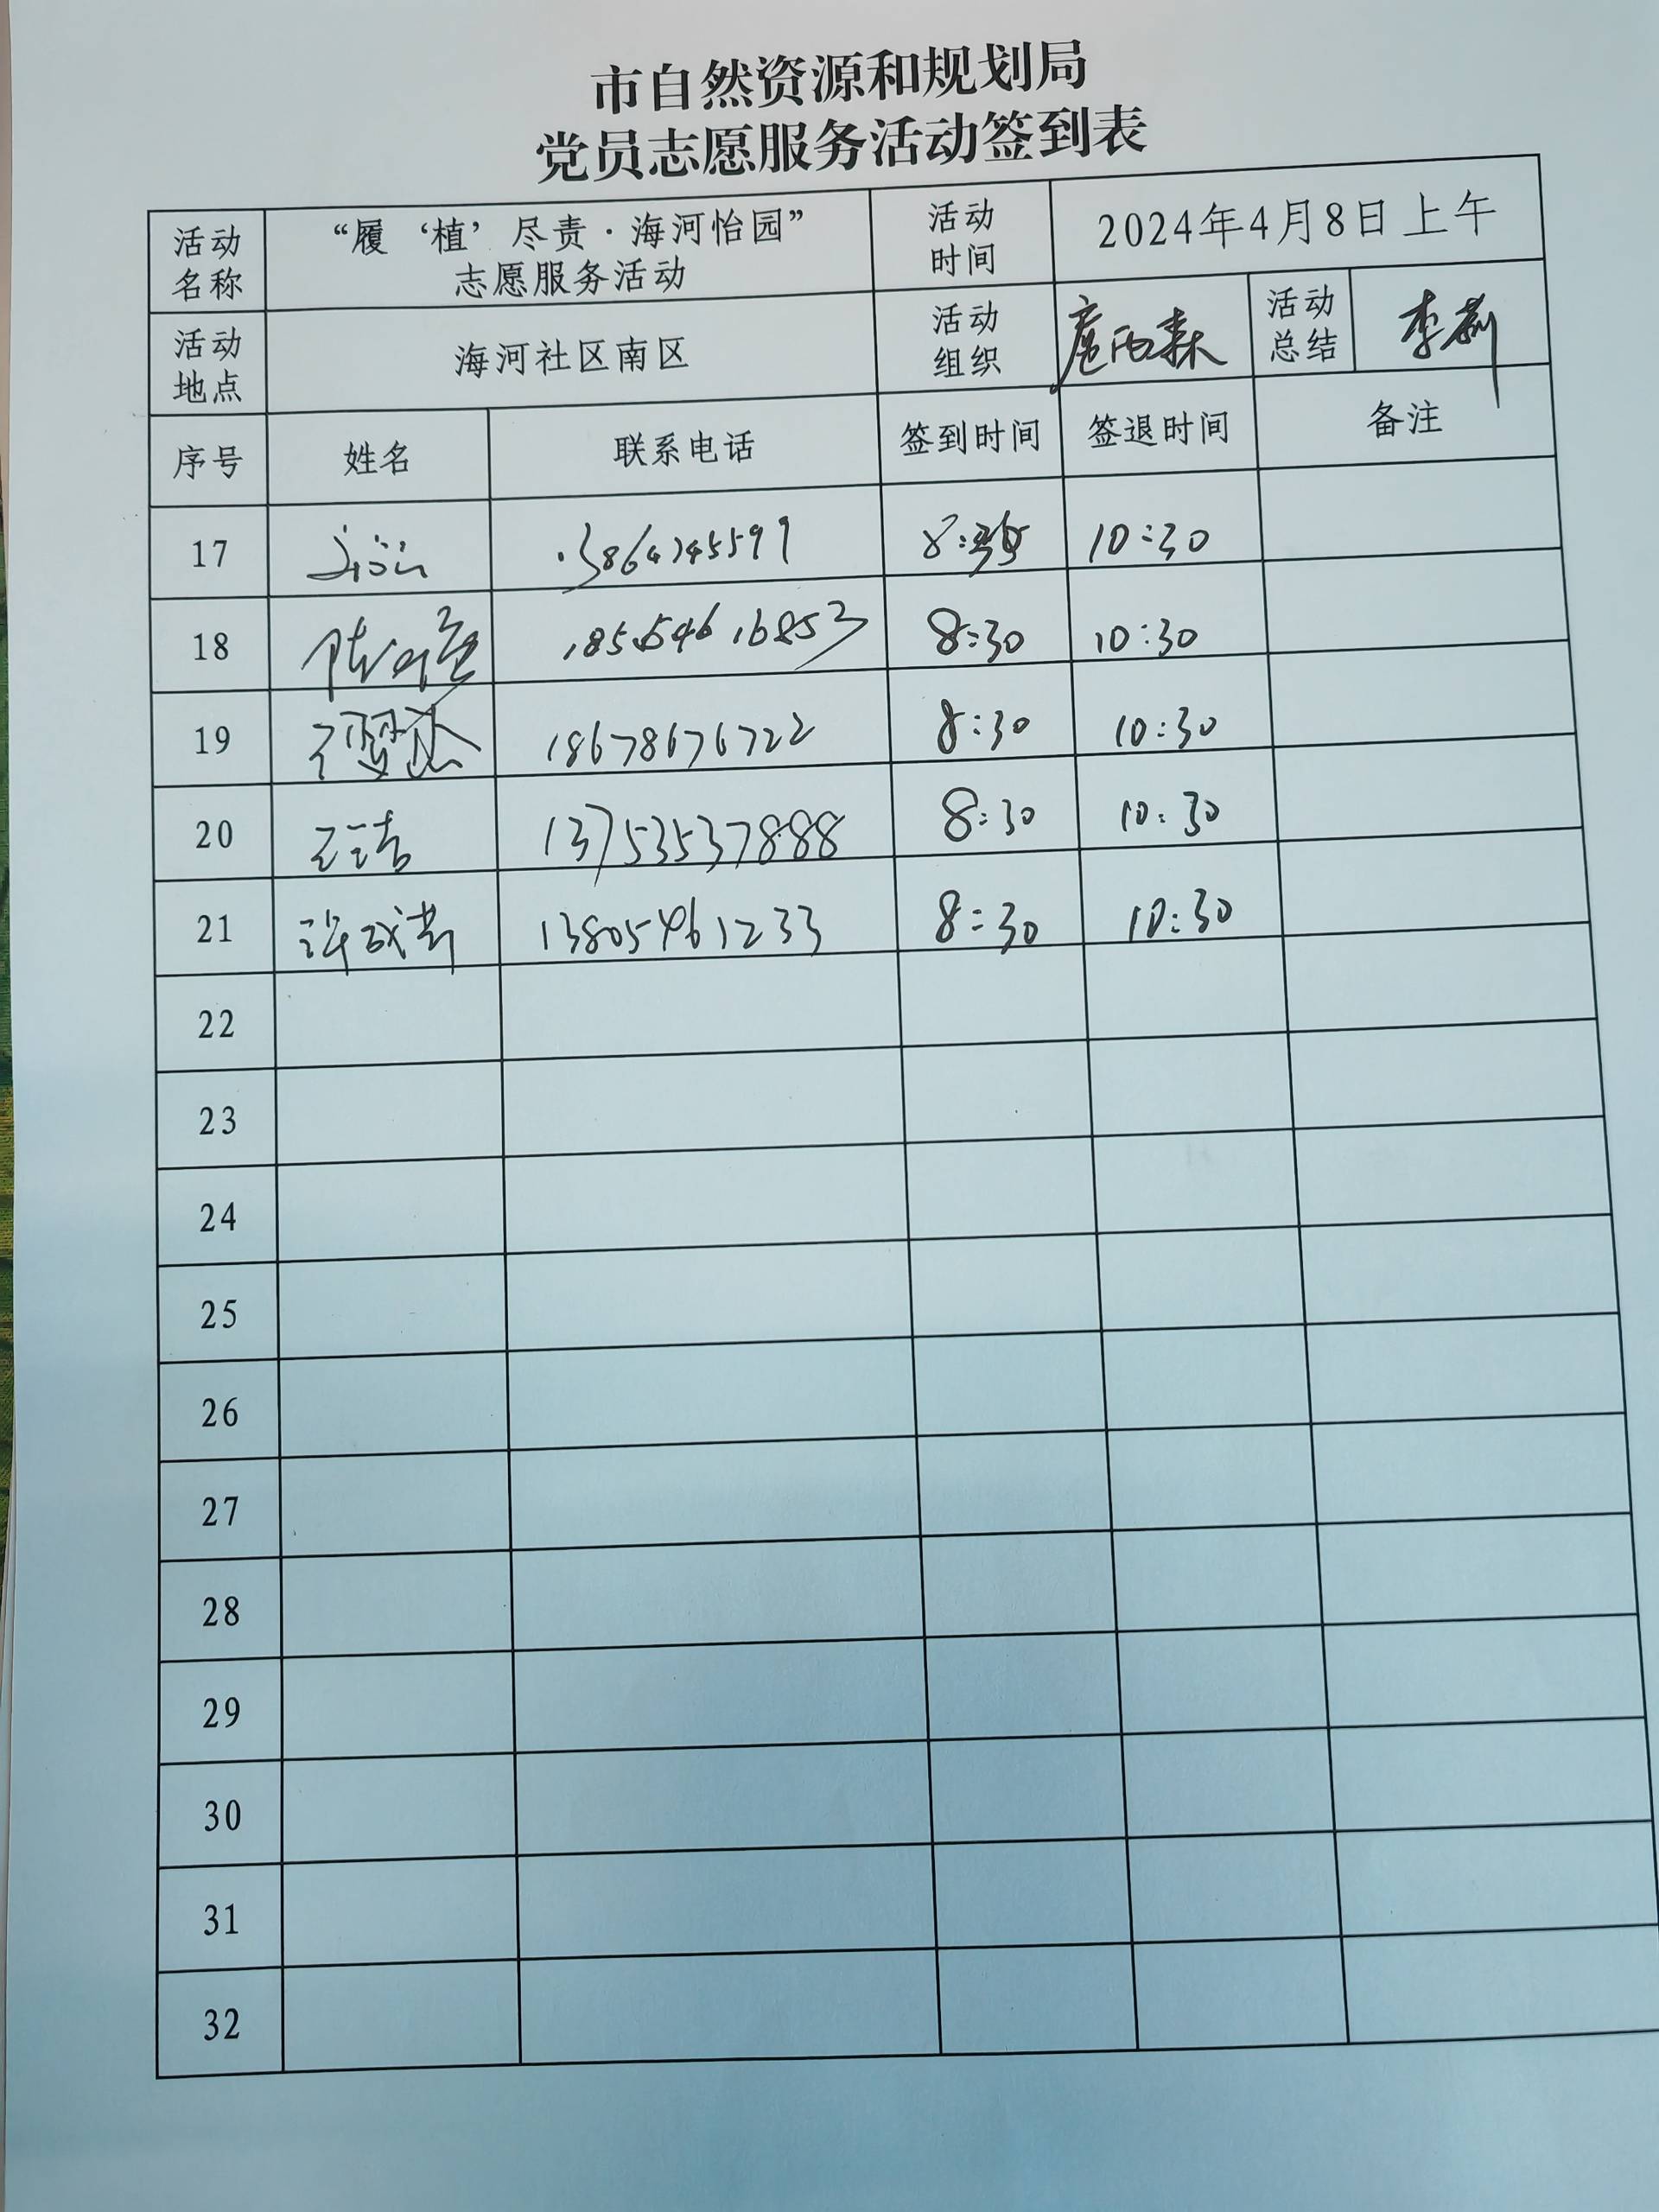 市自然资源和规划局
党员志愿服务活动签到表
活动名称 “履‘植’尽责·海河怡园”志愿服务活动 活动时间 2024年4月8日上午
活动地点 海河社区南区 活动组织 活动总结 李莉
序号 姓名 联系电话 签到时间 签退时间 备注
17 10:30
18 18554616853 8:30 10:30
19 18678676722 8:30 10:30
20 王洁 13753537888 8:30 10:30
21 13805461233 8:30 10:30
22
23
24
25
26
27
28
29
30
31
32